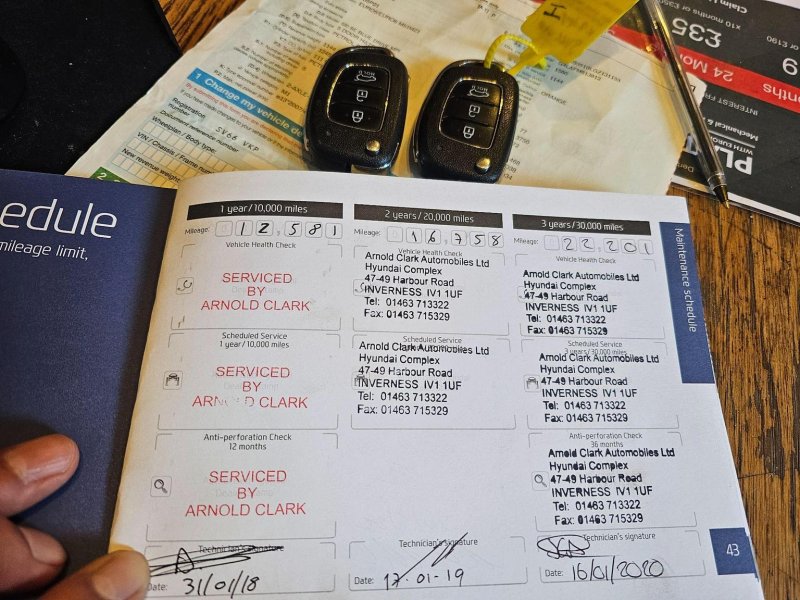 £35
24 Mo
INTEREST FR
Mechanical &
1 Change my vehicle de
Registration
number
SY66 VKP
Document reference number
Wheelplan / Body type:
VIN / Chassis / Frame
New revenue weight:
HOLD
HOLD
edule
mileage limit,
1 year/10,000 miles
Mileage: 012,581
Vehicle Health Check
SERVICED
BY
ARNOLD CLARK
Scheduled Service
1 year/10,000 miles
SERVICED
BY
ARNOLD CLARK
Anti-perforation Check
12 months
SERVICED
BY
ARNOLD CLARK
Technician's signature
Date: 31/01/18
2 years/20,000 miles
Mileage: 016,758
Vehicle Health Check
Arnold Clark Automobiles Ltd
Hyundai Complex
47-49 Harbour Road
INVERNESS IV1 1UF
Tel: 01463 713322
Fax: 01463 715329
Scheduled Service
Arnold Clark Automobiles Ltd
Hyundai Complex
47-49 Harbour Road
INVERNESS IV1 1UF
Tel: 01463 713322
Fax: 01463 715329
Technician's signature
Date: 17-01-19
3 years/30,000 miles
Mileage: 022,201
Vehicle Health Check
Arnold Clark Automobiles Ltd
Hyundai Complex
47-49 Harbour Road
INVERNESS IV1 1UF
Tel: 01463 713322
Fax: 01463 715329
Scheduled Service
3 years/30,000 miles
Arnold Clark Automobiles Ltd
Hyundai Complex
47-49 Harbour Road
INVERNESS IV1 1UF
Tel: 01463 713322
Fax: 01463 715329
Anti-perforation Check
36 months
Arnold Clark Automobiles Ltd
Hyundai Complex
47-49 Harbour Road
INVERNESS IV1 1UF
Tel: 01463 713322
Fax: 01463 715329
Technician's signature
Date: 16/01/2020
Maintenance schedule
43